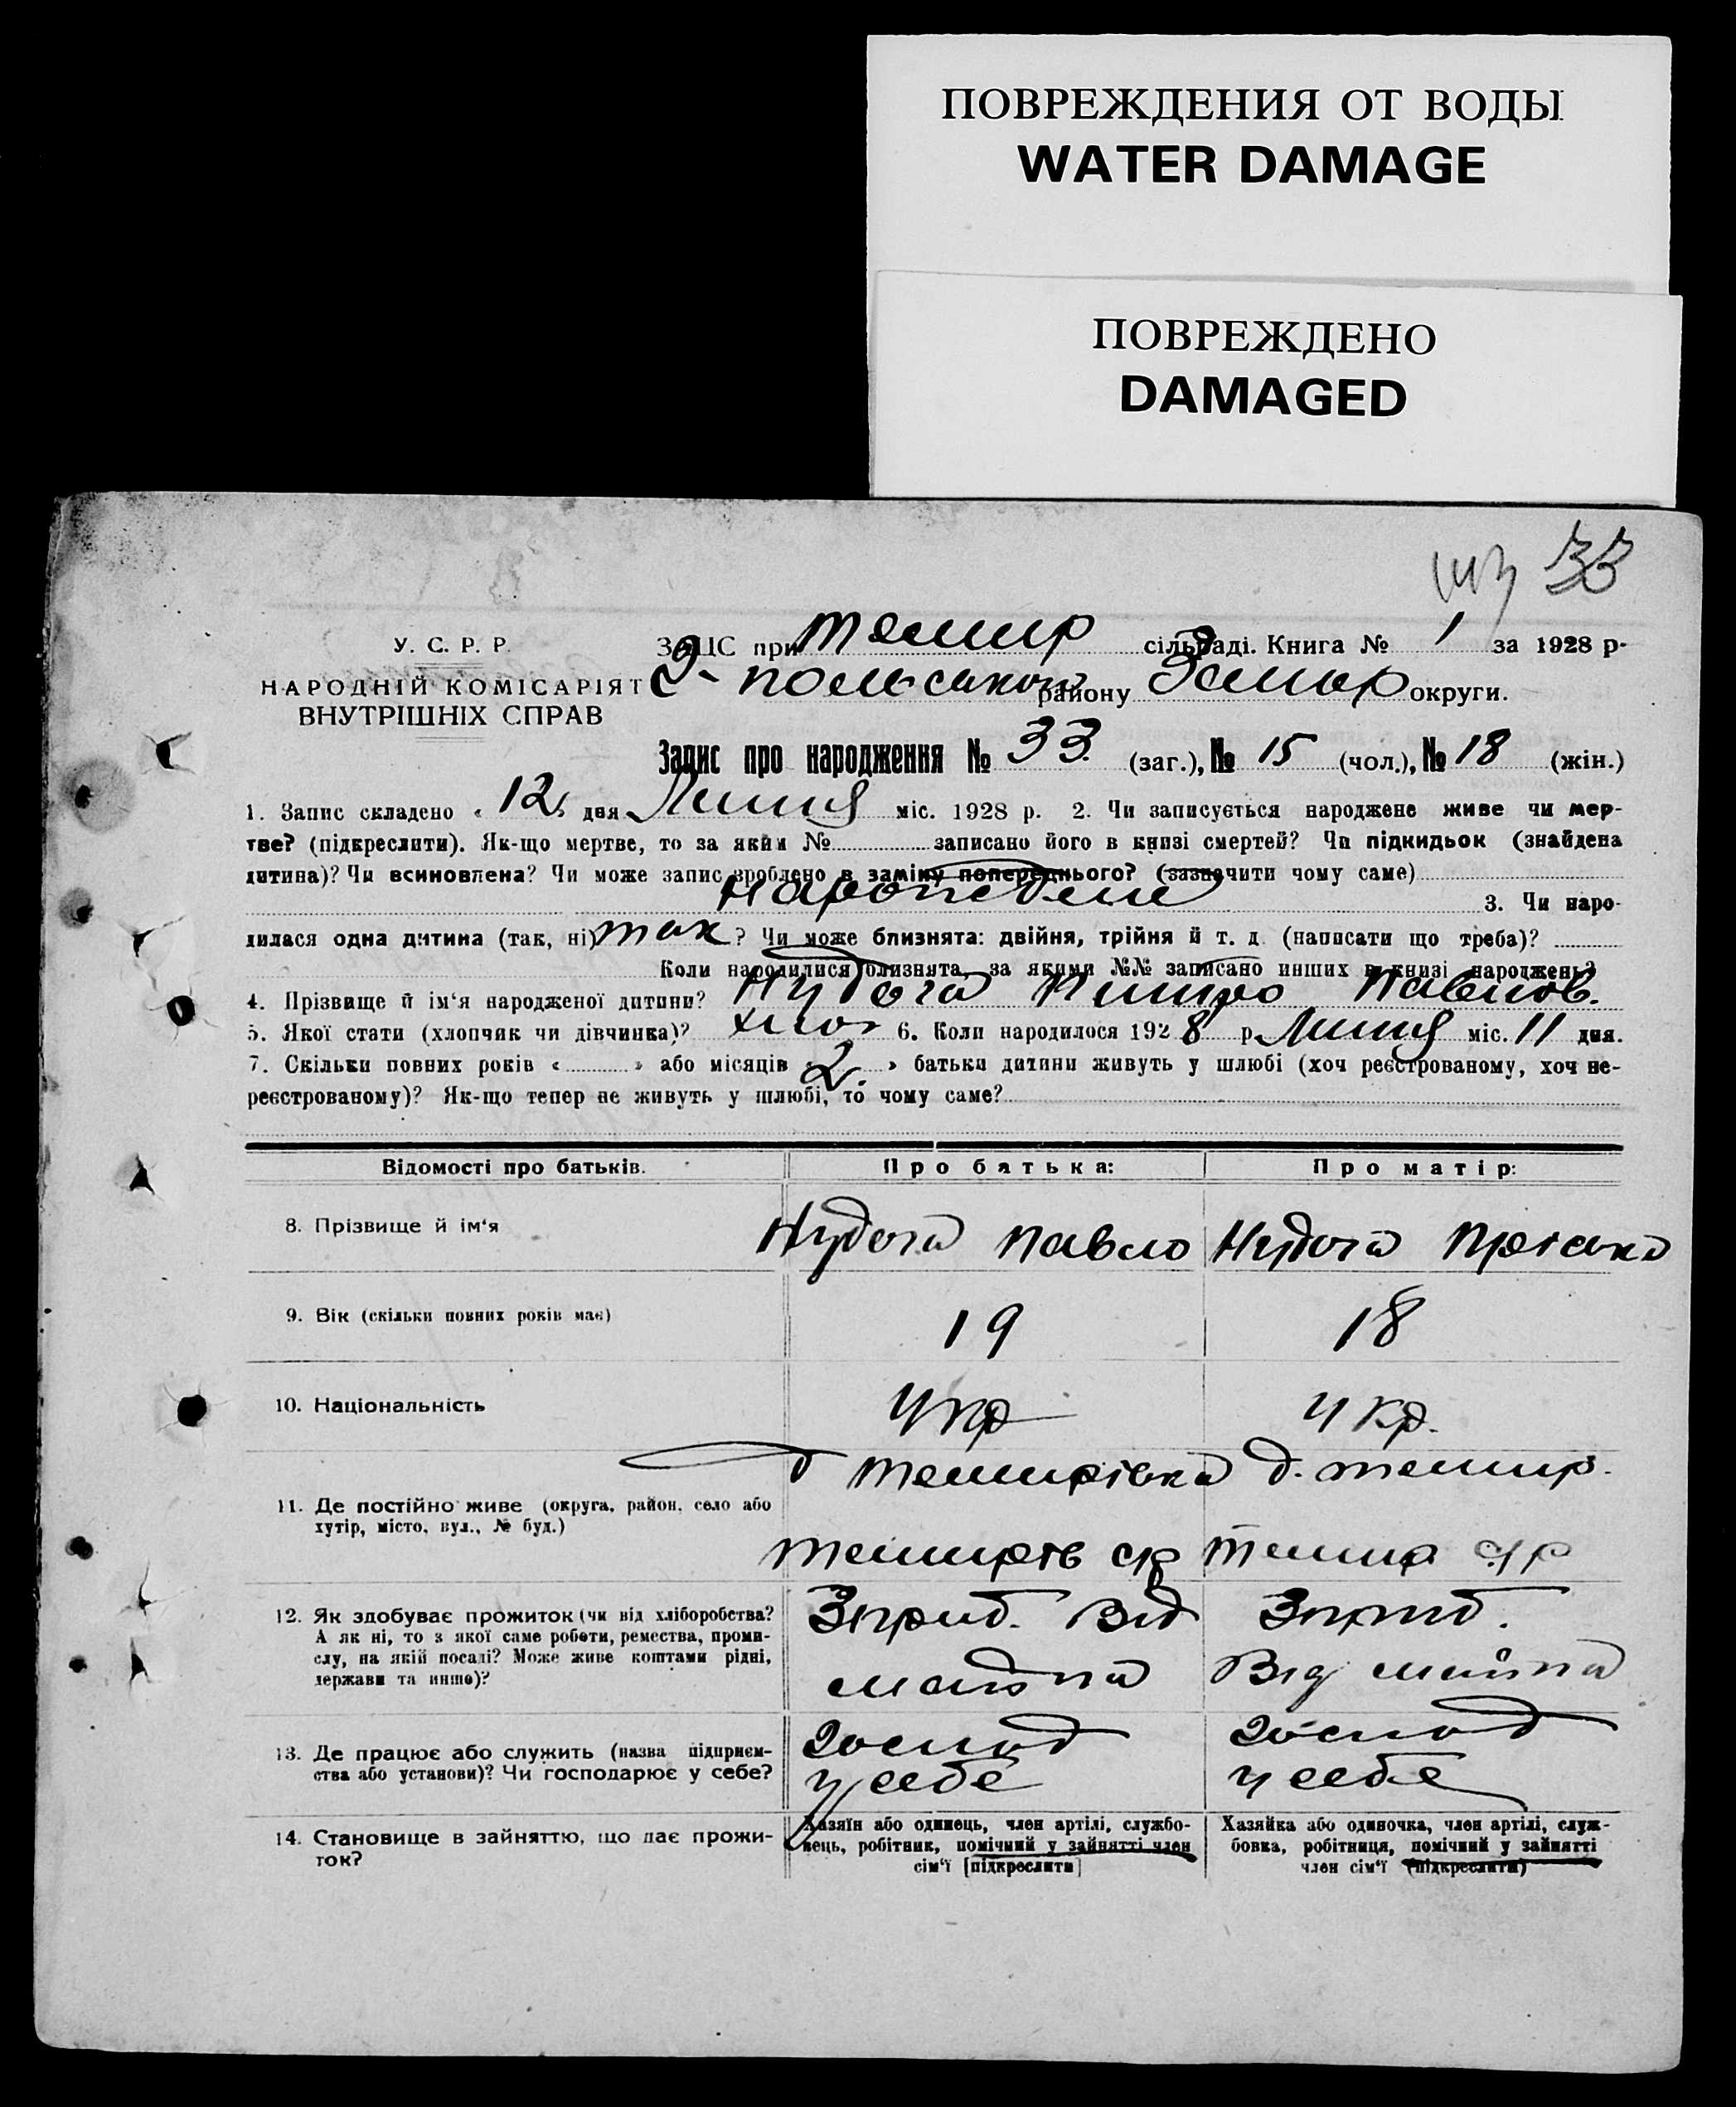 ПОВРЕЖДЕНИЯ ОТ ВОДЫ
WATER DAMAGE
ПОВРЕЖДЕНО
DAMAGED
33
У. С. Р. Р.
НАРОДНІЙ КОМІСАРІЯТ
ВНУТРІШНІХ СПРАВ
ЗАЦС при Темир сільраді. Книга № 1 за 1928 р.
району округи.
Запис про народження № 33 (заг.), № 15 (чол.), № 18 (жін.)
1. Запис складено « 12 » дня Липня міс. 1928 р. 2. Чи записується народжене живе чи мер-
тве? (підкреслити). Як-що мертве, то за яким № записано його в книзі смертей? Чи підкидьок (знайдена
дитина)? Чи всиновлена? Чи може запис зроблено в заміну попереднього? (зазначити чому саме)
3. Чи наро-
дилася одна дитина (так, ні) так? Чи може близнята: двійня, трійня й т. д. (написати що треба)?
Коли народилися близнята, за якими №№ записано инших в книзі народжень?
4. Прізвище й ім'я народженої дитини? Нудога Павлов.
5. Якої стати (хлопчик чи дівчинка)? хлоп 6. Коли народилося 1928 р. Липня міс. 11 дня.
7. Скільки повних років « » або місяців « 2 » батьки дитини живуть у шлюбі (хоч реєстрованому, хоч не-
реєстрованому)? Як-що тепер не живуть у шлюбі, то чому саме?
Відомості про батьків. Про батька: Про матір:
8. Прізвище й ім'я Нудога Павло Нудога Пріська
9. Вік (скільки повних років має) 19 18
10. Національність Укр Укр.
11. Де постійно живе (округа, район, село або
хутір, місто, вул., № буд.)
д Темирівка д. Темир.
Темирів ср Темир с/р
12. Як здобуває прожиток (чи від хліборобства?
А як ні, то з якої саме роботи, ремества, проми-
слу, на якій посаді? Може живе коштами рідні,
держави та инше)?
Зприб. Від Зприб.
майна Від майна
13. Де працює або служить (назва підприєм-
ства або установи)? Чи господарює у себе?
Господ Господ
у себе у себе
14. Становище в зайняттю, що дає прожи-
ток?
Хазяїн або одинець, член артілі, службо-
вець, робітник, помічний у зайнятті член
сім'ї [підкреслити]
Хазяйка або одиночка, член артілі, служ-
бовка, робітниця, помічний у зайнятті
член сім'ї (підкреслити)